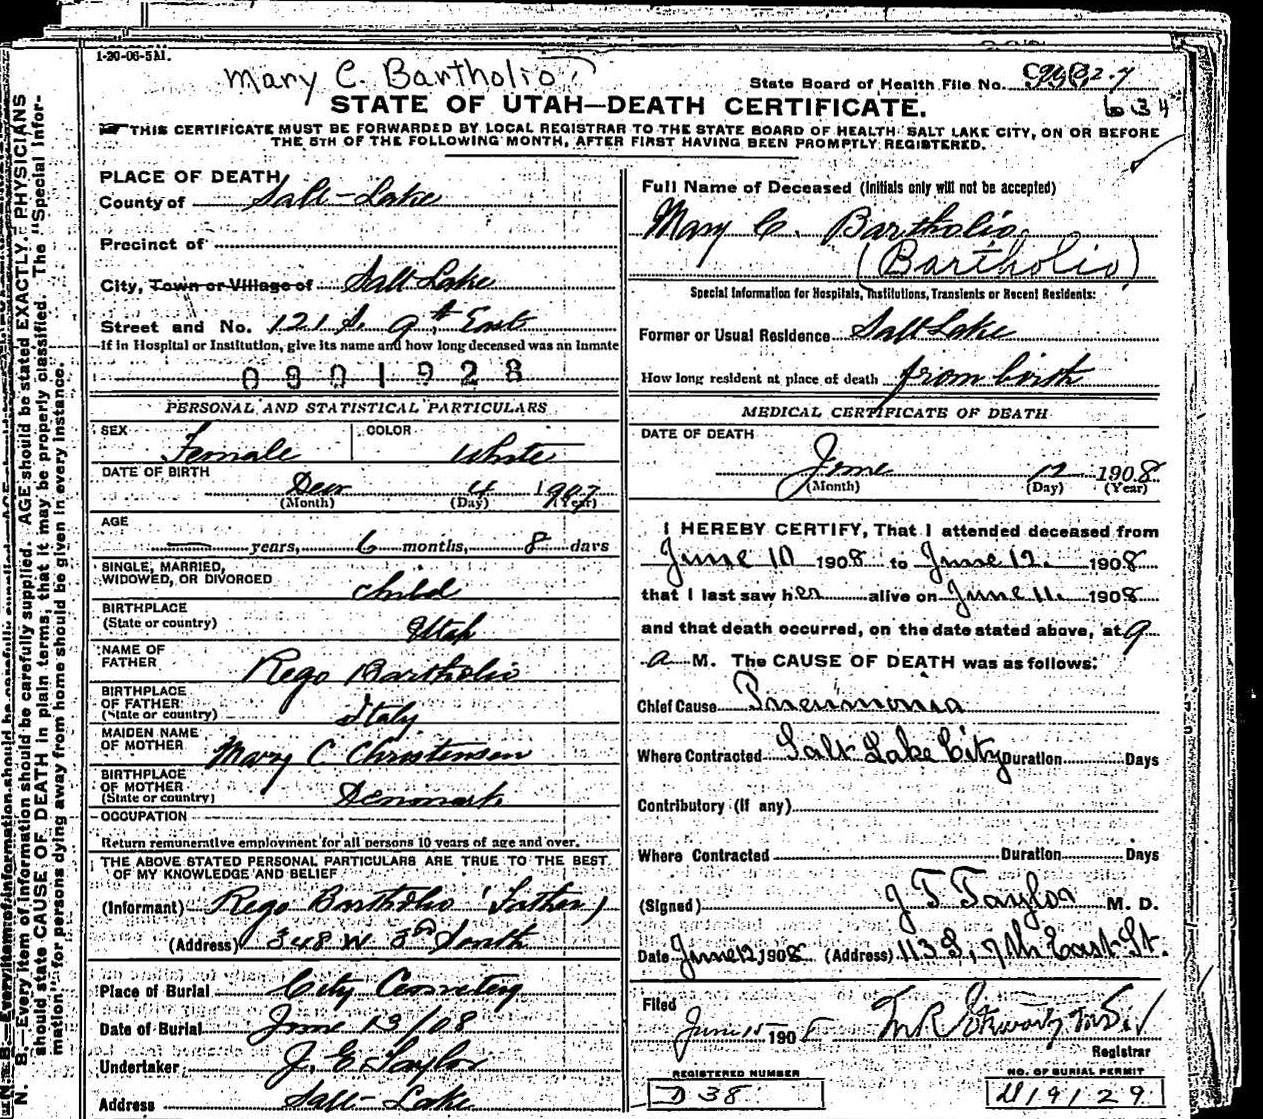 1-20-06-5M.
Mary C. Bartholio
State Board of Health File No.
634
STATE OF UTAH—DEATH CERTIFICATE.
THIS CERTIFICATE MUST BE FORWARDED BY LOCAL REGISTRAR TO THE STATE BOARD OF HEALTH SALT LAKE CITY, ON OR BEFORE
THE 5TH OF THE FOLLOWING MONTH, AFTER FIRST HAVING BEEN PROMPTLY REGISTERED.
PLACE OF DEATH
County of Salt-Lake
Precinct of
City, Town or Village of Salt Lake
Street and No. 121 S. 9th East
If in Hospital or Institution, give its name and how long deceased was an inmate
0801928
PERSONAL AND STATISTICAL PARTICULARS
SEX Female COLOR White
DATE OF BIRTH
Dec 4 1907
(Month) (Day) (Year)
AGE
— years, 6 months, 8 days
SINGLE, MARRIED,
WIDOWED, OR DIVORCED child
BIRTHPLACE
(State or country) Utah
NAME OF
FATHER Rego Bartholio
BIRTHPLACE
OF FATHER
(State or country) Italy
MAIDEN NAME
OF MOTHER Mary C Christensen
BIRTHPLACE
OF MOTHER
(State or country) Denmark
OCCUPATION
Return remunerative employment for all persons 10 years of age and over.
THE ABOVE STATED PERSONAL PARTICULARS ARE TRUE TO THE BEST
OF MY KNOWLEDGE AND BELIEF
(Informant) Rego Bartholio (Father)
(Address) 348 W 8th South
Place of Burial City Cemetery
Date of Burial June 13/08
Undertaker J. E. Taylor
Address Salt-Lake
Full Name of Deceased (Initials only will not be accepted)
Mary C. Bartholio
(Bartholio)
Special Information for Hospitals, Institutions, Transients or Recent Residents:
Former or Usual Residence Salt Lake
How long resident at place of death from birth
MEDICAL CERTIFICATE OF DEATH
DATE OF DEATH
June 12 1908
(Month) (Day) (Year)
I HEREBY CERTIFY, That I attended deceased from
June 10 1908 to June 12. 1908
that I last saw her alive on June 11. 1908
and that death occurred, on the date stated above, at 9
a M. The CAUSE OF DEATH was as follows:
Chief Cause Pneumonia
Where Contracted Salt Lake City Duration Days
Contributory (if any)
Where Contracted Duration Days
(Signed) J T Taylor M. D.
Date June 12, 1908 (Address) 113 S, 7th East St.
Filed
June 15 1908
Registrar
REGISTERED NUMBER
D 38
NO. OF BURIAL PERMIT
19129
N. B.—Every item of information should be carefully supplied. AGE should be stated EXACTLY. PHYSICIANS
should state CAUSE OF DEATH in plain terms, that it may be properly classified. The "Special Infor-
mation" for persons dying away from home should be given in every instance.